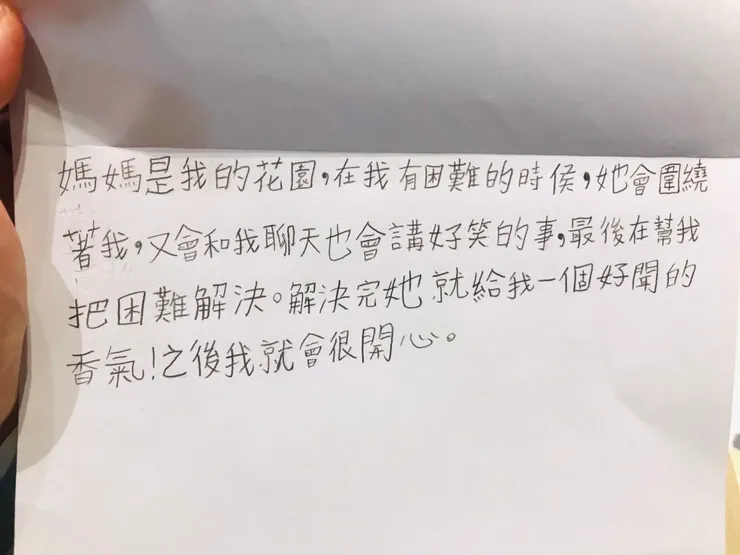 媽媽是我的花園，在我有困難的時侯，她會圍繞
著我，又會和我聊天也會講好笑的事，最後在幫我
把困難解決。解決完她就給我一個好聞的
香氣！之後我就會很開心。